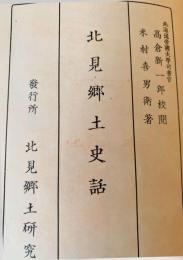 北海道帝國大學司書官
高倉新一郎校閲
米村喜男衛著
北見郷土史話
發行所
北見郷土研究